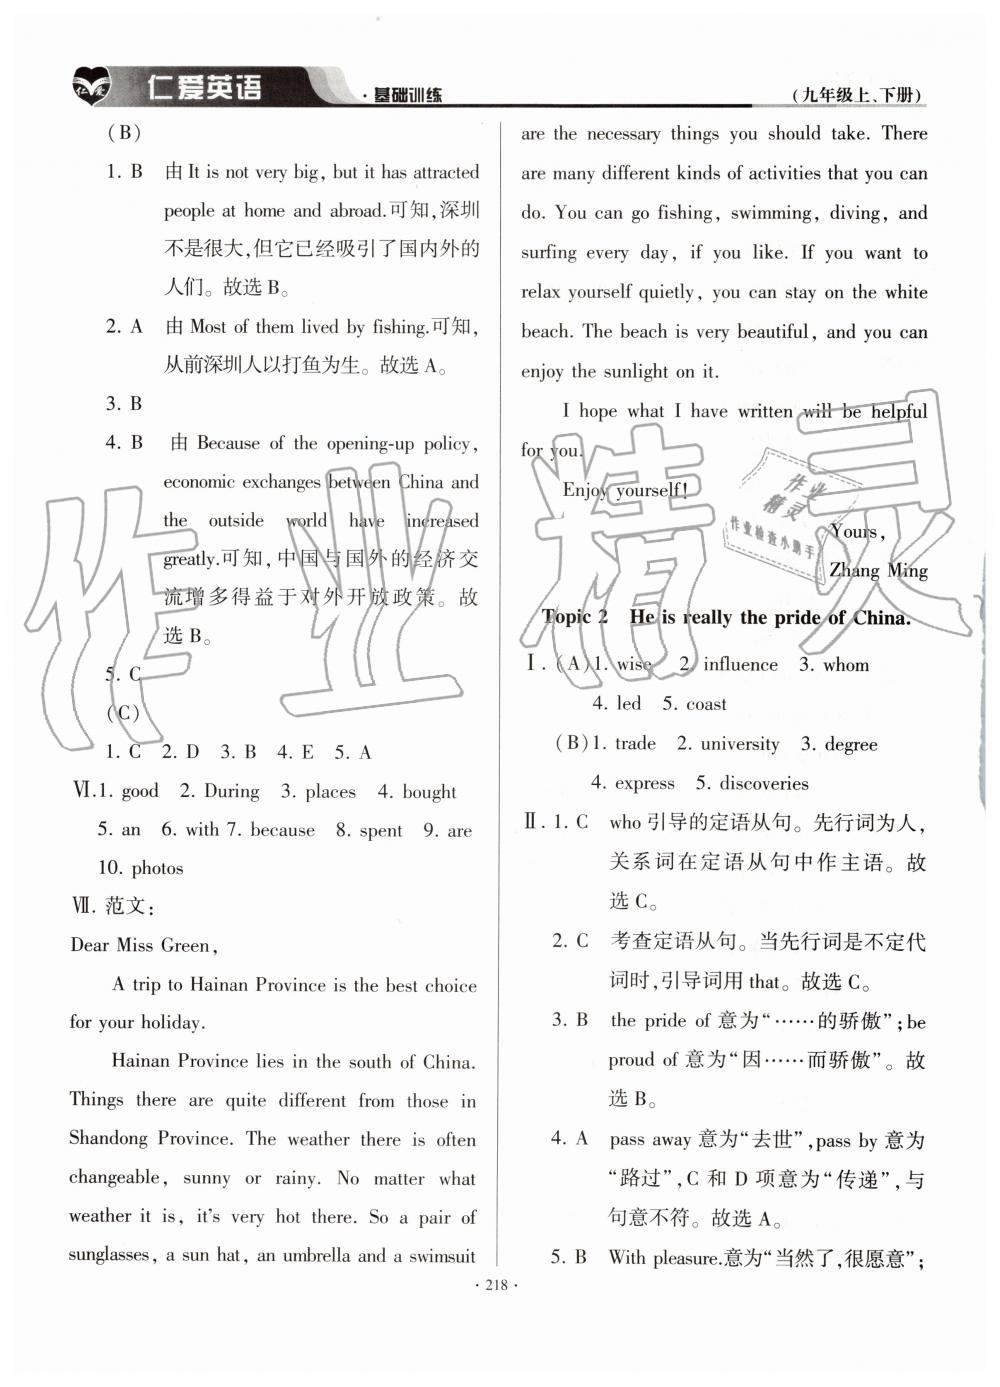 仁爱
仁爱英语
·基础训练
(九年级上、下册)
(B)
1. B 由 It is not very big, but it has attracted
people at home and abroad.可知,深圳
不是很大,但它已经吸引了国内外的
人们。故选 B。
2. A 由 Most of them lived by fishing.可知,
从前深圳人以打鱼为生。故选 A。
3. B
4. B 由 Because of the opening-up policy,
economic exchanges between China and
the outside world have increased
greatly.可知,中国与国外的经济交
流增多得益于对外开放政策。故
选 B。
5. C
(C)
1. C 2. D 3. B 4. E 5. A
Ⅵ.1. good 2. During 3. places 4. bought
5. an 6. with 7. because 8. spent 9. are
10. photos
Ⅶ. 范文:
Dear Miss Green,
A trip to Hainan Province is the best choice
for your holiday.
Hainan Province lies in the south of China.
Things there are quite different from those in
Shandong Province. The weather there is often
changeable, sunny or rainy. No matter what
weather it is, it's very hot there. So a pair of
sunglasses, a sun hat, an umbrella and a swimsuit
are the necessary things you should take. There
are many different kinds of activities that you can
do. You can go fishing, swimming, diving, and
surfing every day, if you like. If you want to
relax yourself quietly, you can stay on the white
beach. The beach is very beautiful, and you can
enjoy the sunlight on it.
I hope what I have written will be helpful
for you.
Enjoy yourself!
Yours,
Zhang Ming
Topic 2 He is really the pride of China.
Ⅰ. (A)1. wise 2. influence 3. whom
4. led 5. coast
(B)1. trade 2. university 3. degree
4. express 5. discoveries
Ⅱ. 1. C who 引导的定语从句。先行词为人,
关系词在定语从句中作主语。故
选 C。
2. C 考查定语从句。当先行词是不定代
词时,引导词用 that。故选 C。
3. B the pride of 意为“……的骄傲”;be
proud of 意为“因……而骄傲”。故
选 B。
4. A pass away 意为“去世”,pass by 意为
“路过”,C 和 D 项意为“传递”,与
句意不符。故选 A。
5. B With pleasure.意为“当然了,很愿意”;
· 218 ·
作业精灵
作业
精灵
作业检查小助手